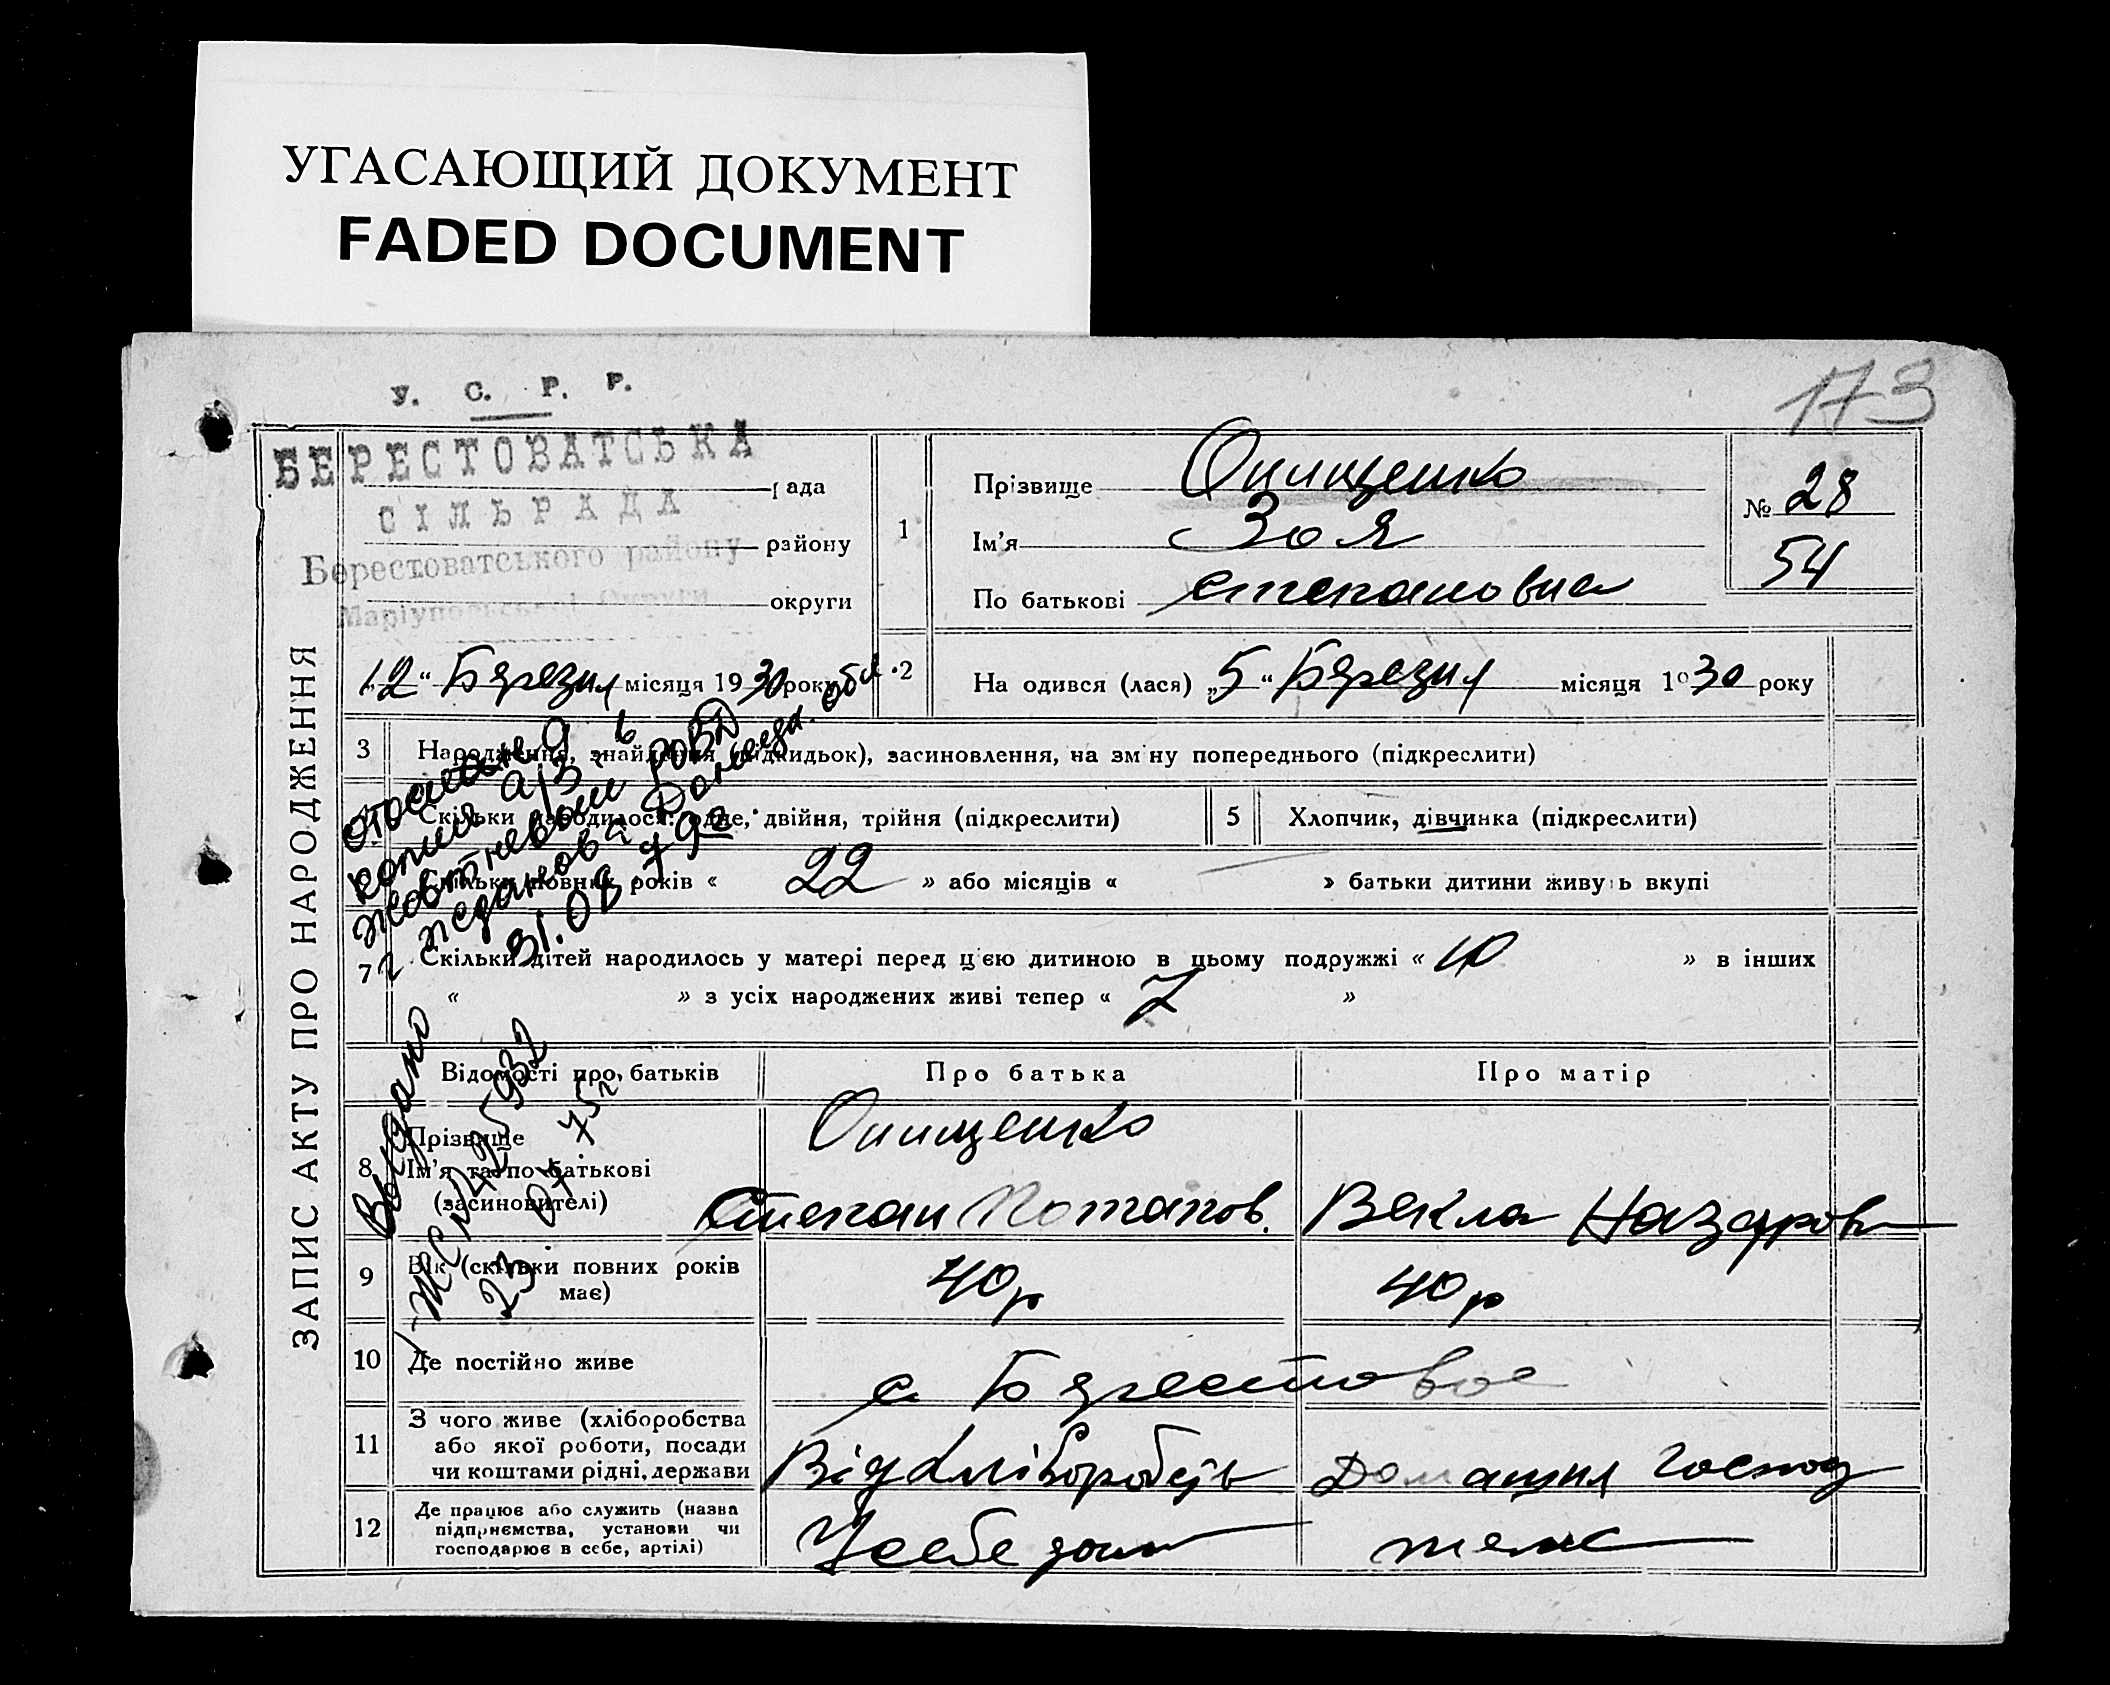 УГАСАЮЩИЙ ДОКУМЕНТ
FADED DOCUMENT
173
У. С. Р. Р.
БЕРЕСТОВАТСЬКА
рада
СІЛЬРАДА
району
Берестоватського району
округи
Маріупольської Округи
ЗАПИС АКТУ ПРО НАРОДЖЕННЯ
„12“ Бярезня місяця 1930 року
1
Прізвище Онищенко
Ім'я Зоя
По батькові Степановна
№ 28
54
2 На одився (лася) „5“ Бярезня місяця 1930 року
3 Народження, знайдення (підкидьок), засиновлення, на зміну попереднього (підкреслити)
Скільки народилося: одне, двійня, трійня (підкреслити)
5 Хлопчик, дівчинка (підкреслити)
Скільки повних років « 22 » або місяців « » батьки дитини живуть вкупі
7 Скільки дітей народилось у матері перед цією дитиною в цьому подружжі « 10 » в інших
« » з усіх народжених живі тепер « 7 »
копия а/з в
Жовтневый РОВД
г. Жданова Донецк. обл.
31.08.79г
Выдано
23 07 75г
Відомості про батьків
Про батька
Про матір
8 Прізвище
Ім'я та по батькові
(засиновителі)
Онищенко
Степан Потапов.
Векла Назаров
9 Вік (скільки повних років
має)
40р
40р
10 Де постійно живе
с Бярестовое
11 З чого живе (хліборобства
або якої роботи, посади
чи коштами рідні, держави
Від хліборобств
Домашня господ
12 Де працює або служить (назва
підприємства, установи чи
господарює в себе, артілі)
У себе дома
теж